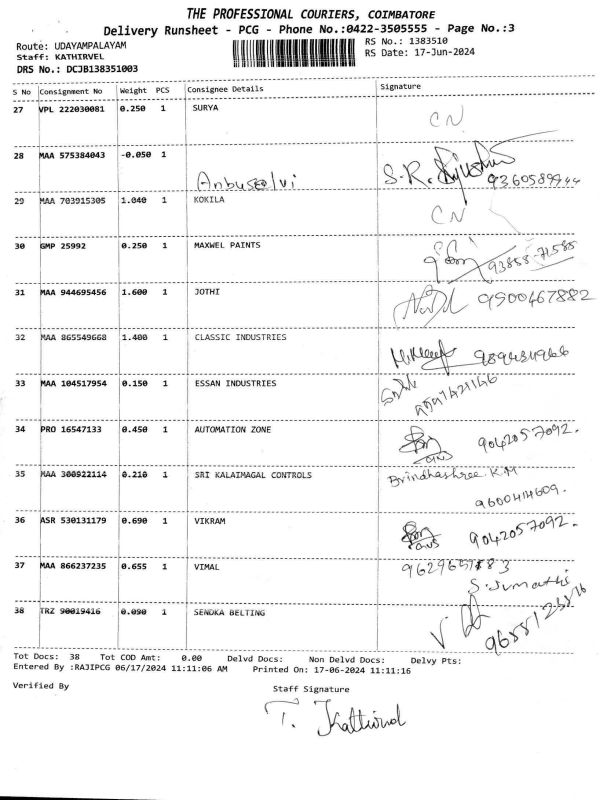 THE PROFESSIONAL COURIERS, COIMBATORE
Delivery Runsheet - PCG - Phone No.:0422-3505555 - Page No.:3
Route: UDAYAMPALAYAM
RS No.: 1383510
Staff: KATHIRVEL
RS Date: 17-Jun-2024
DRS No.: DCJB138351003
S No Consignment No Weight PCS Consignee Details Signature
27 VPL 222030081 0.250 1 SURYA
CN
28 MAA 575384043 -0.050 1
Anbuselvi S.R. 9360589944
29 MAA 703915305 1.040 1 KOKILA
CN
30 GMP 25992 0.250 1 MAXWEL PAINTS
93858-71585
31 MAA 944695456 1.600 1 JOTHI
9500467882
32 MAA 865549668 1.400 1 CLASSIC INDUSTRIES
33 MAA 104517954 0.150 1 ESSAN INDUSTRIES
34 PRO 16547133 0.450 1 AUTOMATION ZONE
9042057092.
35 MAA 300922114 0.210 1 SRI KALAIMAGAL CONTROLS
Brindhashree.K.M
9600414609.
36 ASR 530131179 0.690 1 VIKRAM
9042057092.
37 MAA 866237235 0.655 1 VIMAL
S.Sumathi
38 TRZ 90019416 0.090 1 SENDKA BELTING
Tot Docs: 38 Tot COD Amt: 0.00 Delvd Docs: Non Delvd Docs: Delvy Pts:
Entered By :RAJIPCG 06/17/2024 11:11:06 AM Printed On: 17-06-2024 11:11:16
Verified By Staff Signature